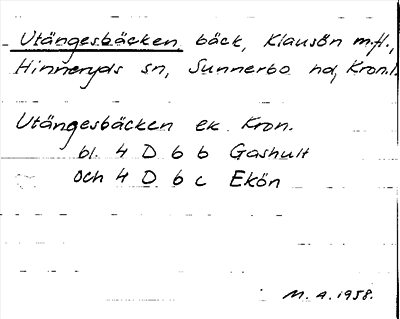 Utängesbäcken, bäck, Klausön m.fl.,
Hinneryds sn, Sunnerbo hd, Kron.l.
Utängesbäcken ek. Kron.
bl. 4 D 6 b Gashult
och 4 D 6 c Ekön
M. A. 1958.